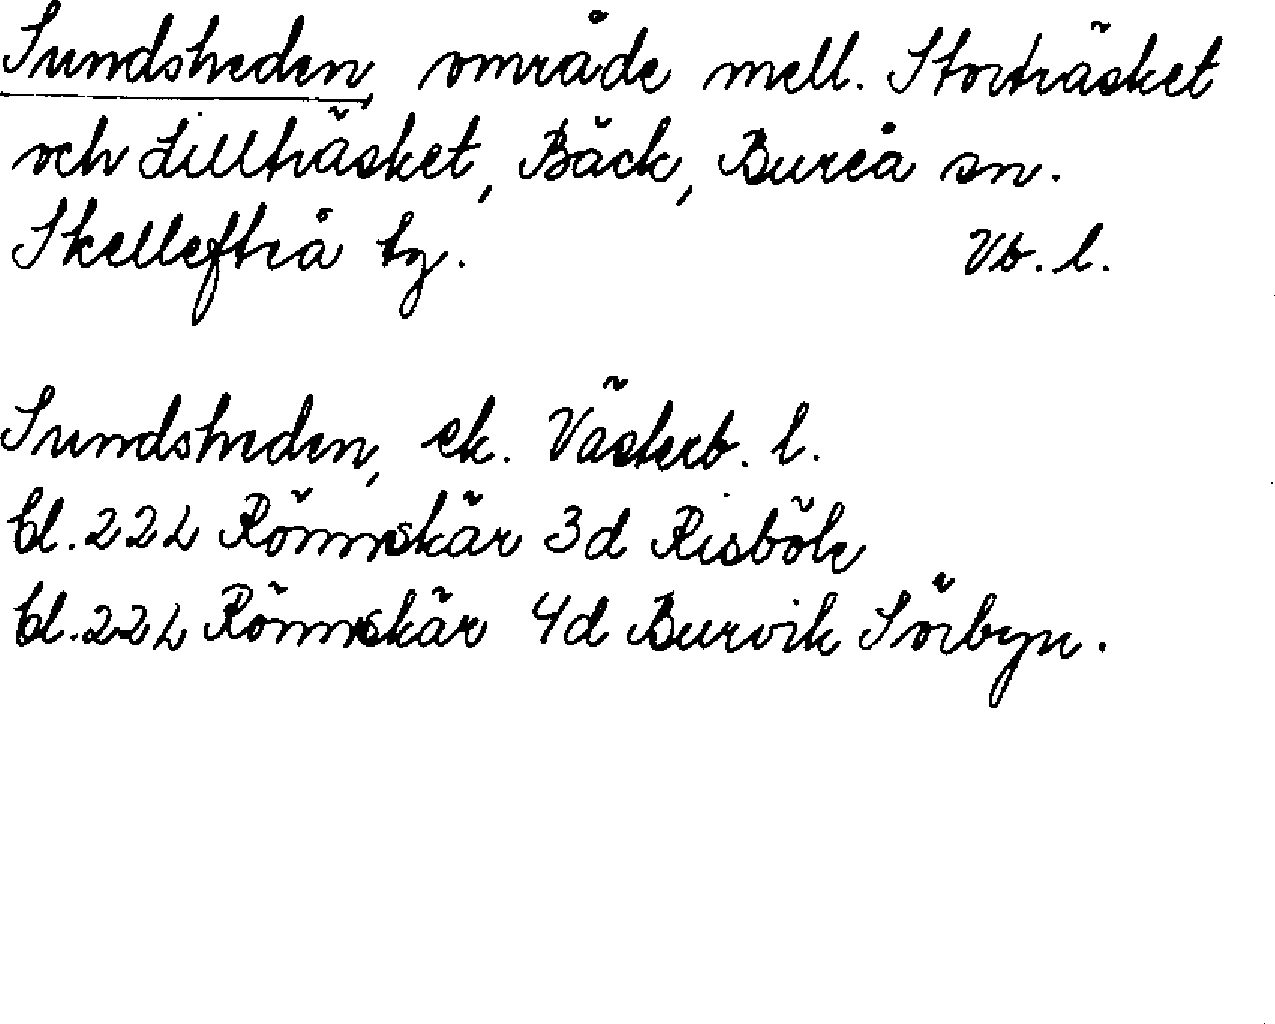 Sundsheden, område mell. Storträsket
och Lillträsket, Bäck, Bureå sn.
Skellefteå tg. Vb. l.
Sundsheden, ek. Västerb. l.
bl. 22 L Rönnskär 3d Risböle
bl. 22 L Rönnskär 4d Burvik Sörbyn.